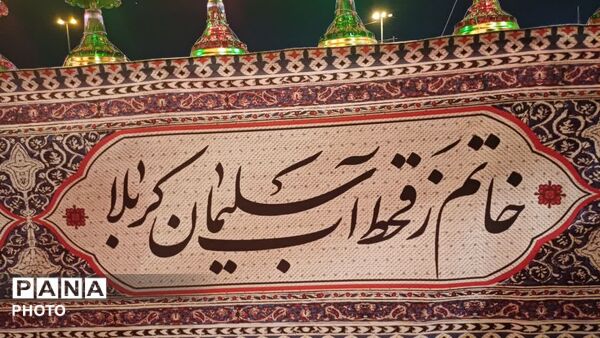 خاتم ز قحط آب سلیمان کربلا
PANA
PHOTO